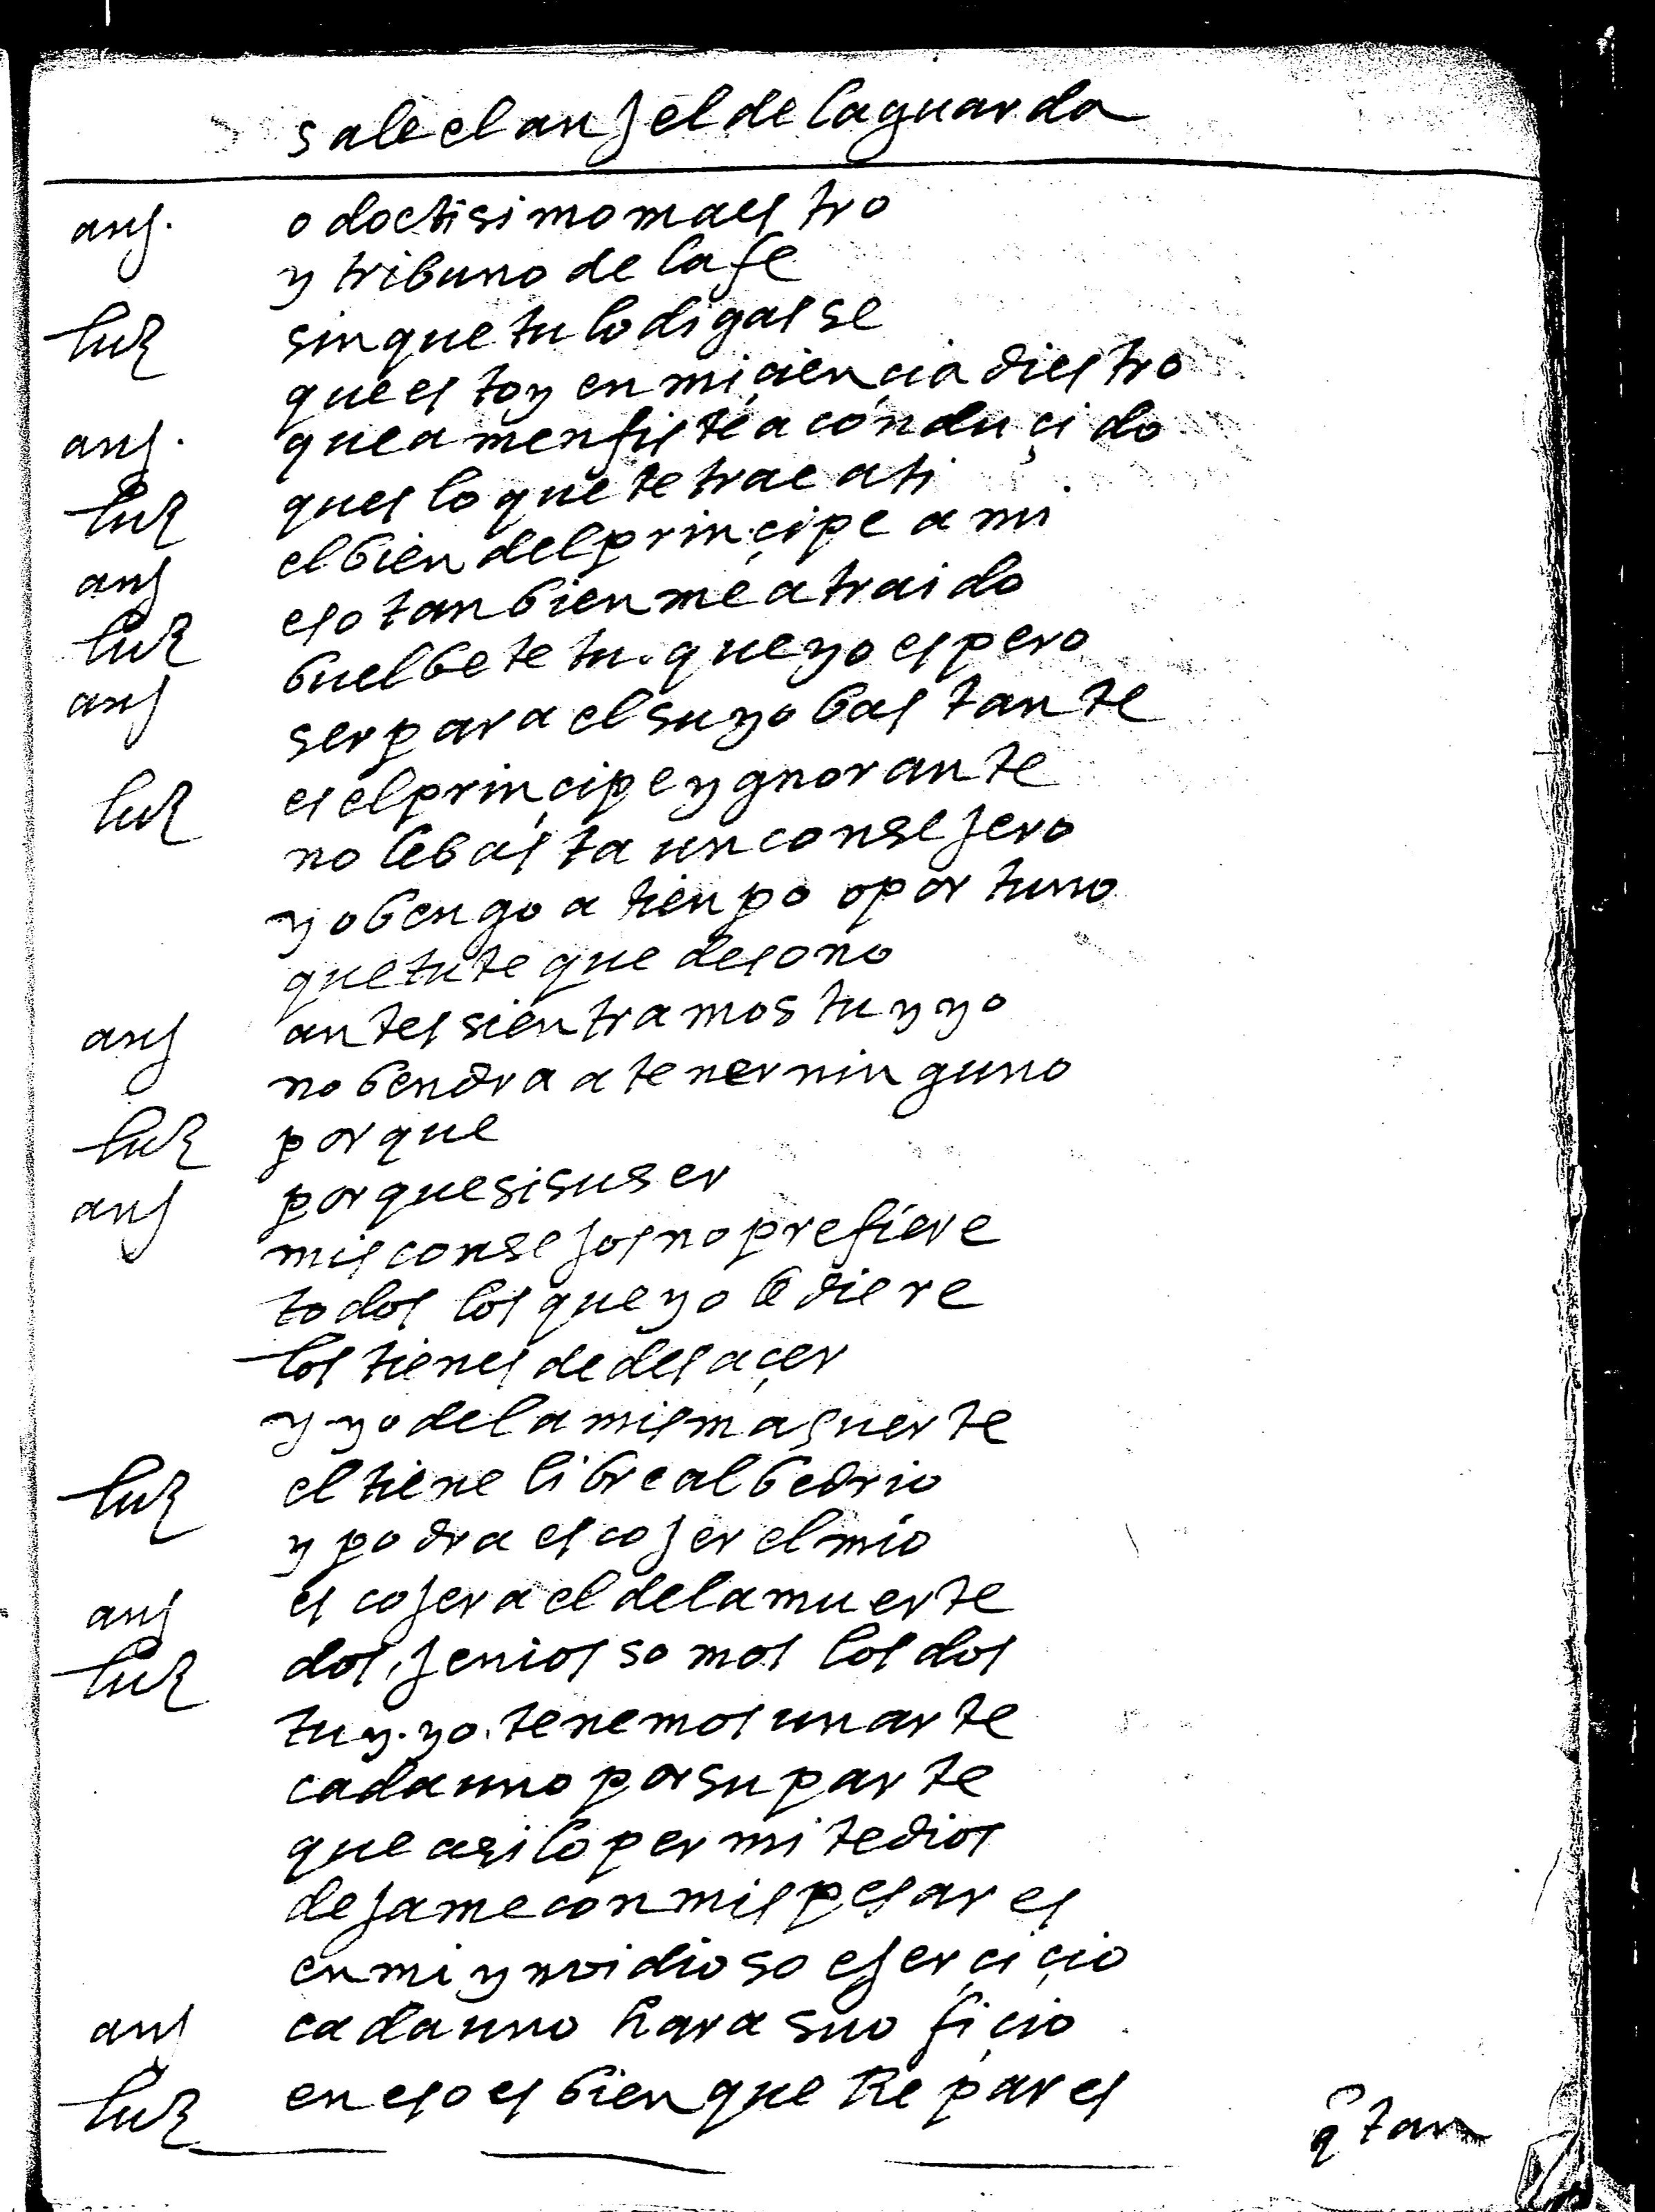 sale el anjel de la guarda
anj. o doctisimo maestro
y tribuno de la fe
luz sin que tu lo digas se
que estoy en mi çiençia diestro
anj. que a menfis te a conduçido
luz ques lo que te trae a ti
anj el bien del prinçipe a mi
luz eso tanbien me a traido
anj buelbete tu. que yo espero
ser para el suyo bastante
luz es el prinçipe ygnorante
no le basta un consejero
yo bengo a tienpo oportuno
que tu te quedes o no
anj antes si entramos tu y yo
no bendra a tener ninguno
luz por que
anj porque si su ser
mis consejos no prefiere
todos los que yo le diere
los tienes de desaçer
y yo de la misma suerte
luz el tiene libre albedrio
y podra escojer el mio
anj escojera el de la muerte
luz dos jenios somos los dos
tu y. yo. tenemos un arte
cada uno por su parte
que asi lo permite dios
dejame con mis pesares
en mi ynvidioso ejerçiçio
anj cada uno hara su ofiçio
luz en eso es bien que Repares
q̃ tan